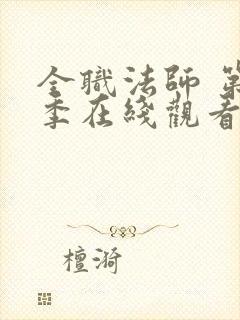 全職法師 第
季在綫觀看
檀漪